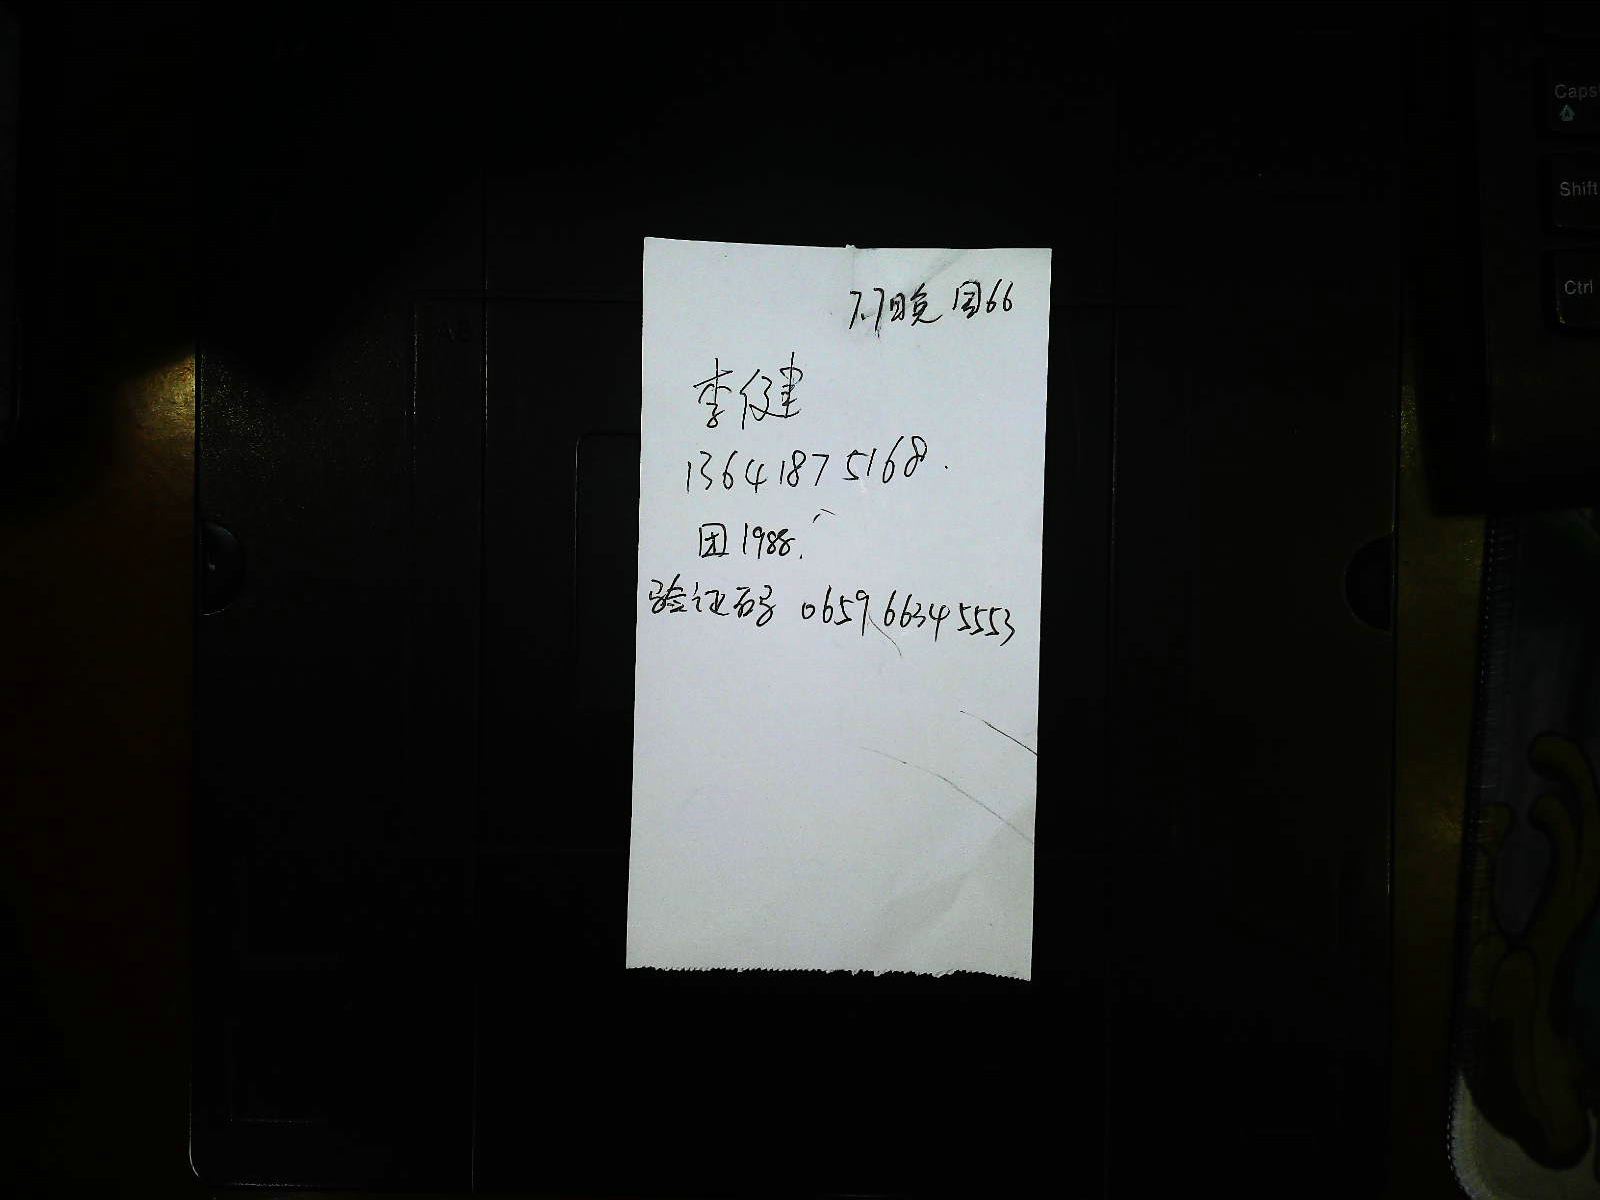 7.7晚 国66
李健
13641875168.
团1988.
验证码 0659 6634 5553
Caps
Shift
Ctrl